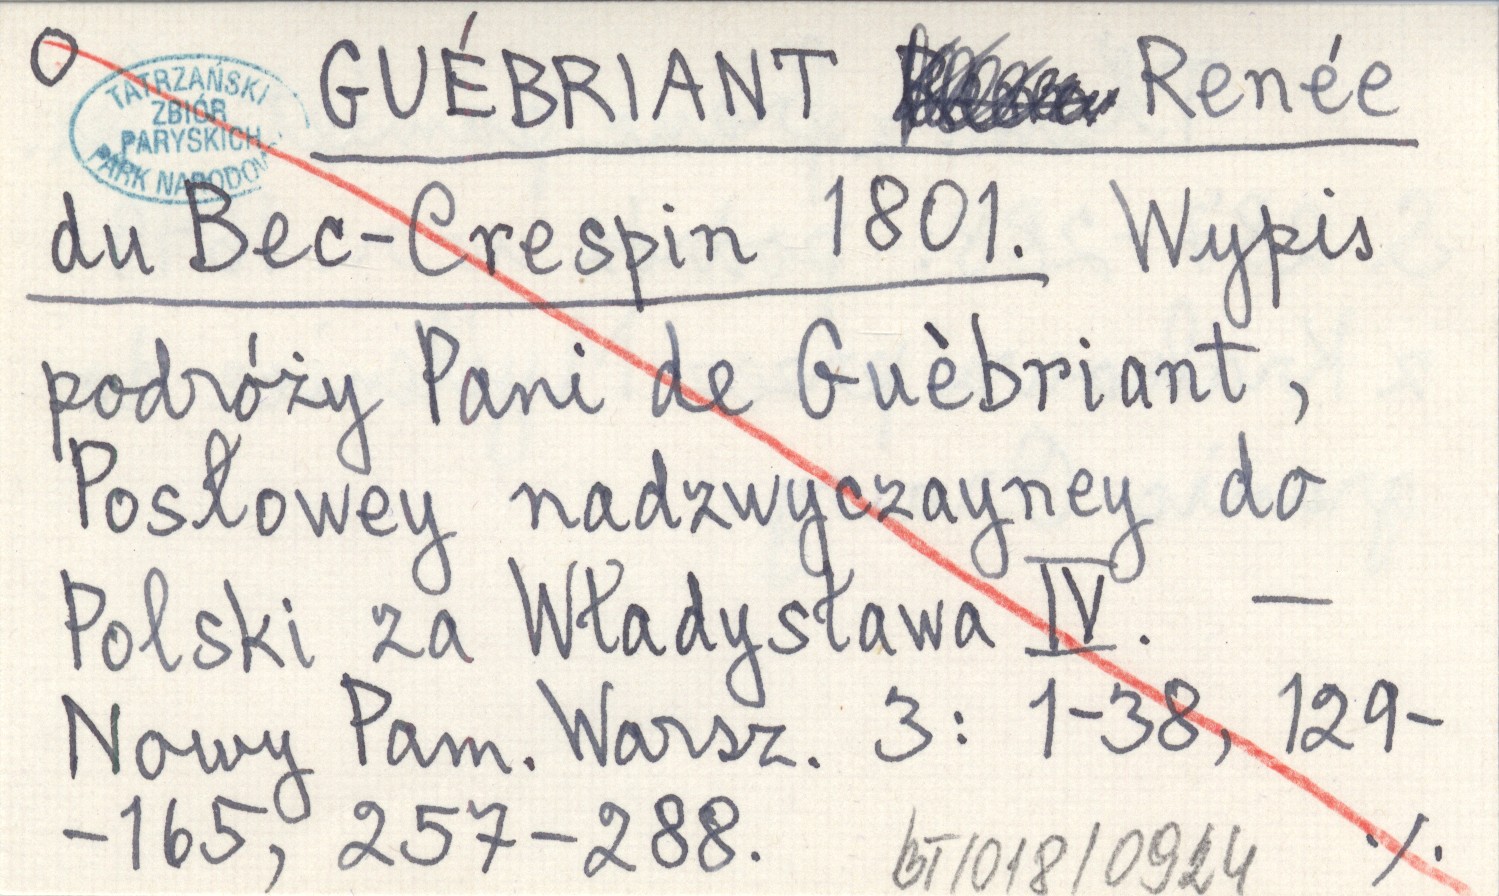 O
TATRZAŃSKI
ZBIÓR
PARYSKICH
PARK NARODOWY
GUÉBRIANT Renée
du Bec-Crespin 1801. Wypis
podróży Pani de Guèbriant,
Posłowey nadzwyczayney do
Polski za Władysława IV. —
Nowy Pam. Warsz. 3: 1-38, 129-
-165, 257-288.
bT/018/0924
./.